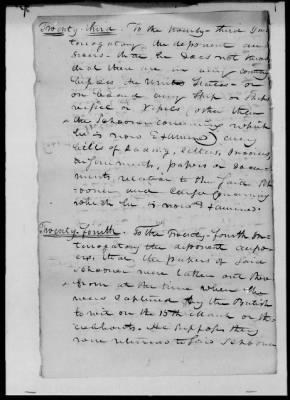 Twenty-third. To the twenty-third In-
terrogatory, the deponent ans-
wers - that he does not know
that there are in any country
besides the United States - or
on board any Ship or Ships
vessel or Vessels, (other than
the Schooner concerning which
he is now examined) any
bills of lading, letters, Invoices,
Instruments, papers or docu-
ments, relative to the said Sch-
ooner and Cargo concerning
which he is now examined.
Twenty-fourth. To the Twenty-fourth In-
terrogatory the deponent answ-
ers, that the papers of said
schooner were taken out there
from at the time when she
was captured by the British
to wit on the 15th
He supposes they
were returned to said Schooner